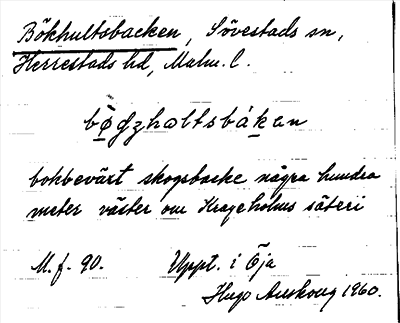 Bökhultsbacken, Sövestads sn,
Herrestads hd, Malm. l.
bøgzholtsbákan
bokbeväxt skogsbacke några hundra
meter väster om Krageholms säteri
M. f. 90. Uppt. i Öja
Hugo Areskoug 1960.